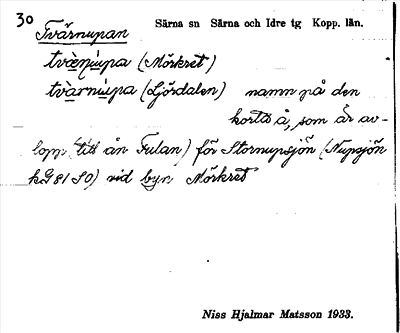 30 Särna sn Särna och Idre tg Kopp. län.
Tvärnupan
(Mörkret)
(Ljördalen) namn på den
korta å, som är av-
lopp (till ån Fulan) för Stornupsjön (Nupsjön
kG 81 SO) vid byn Mörkret
Niss Hjalmar Matsson 1933.